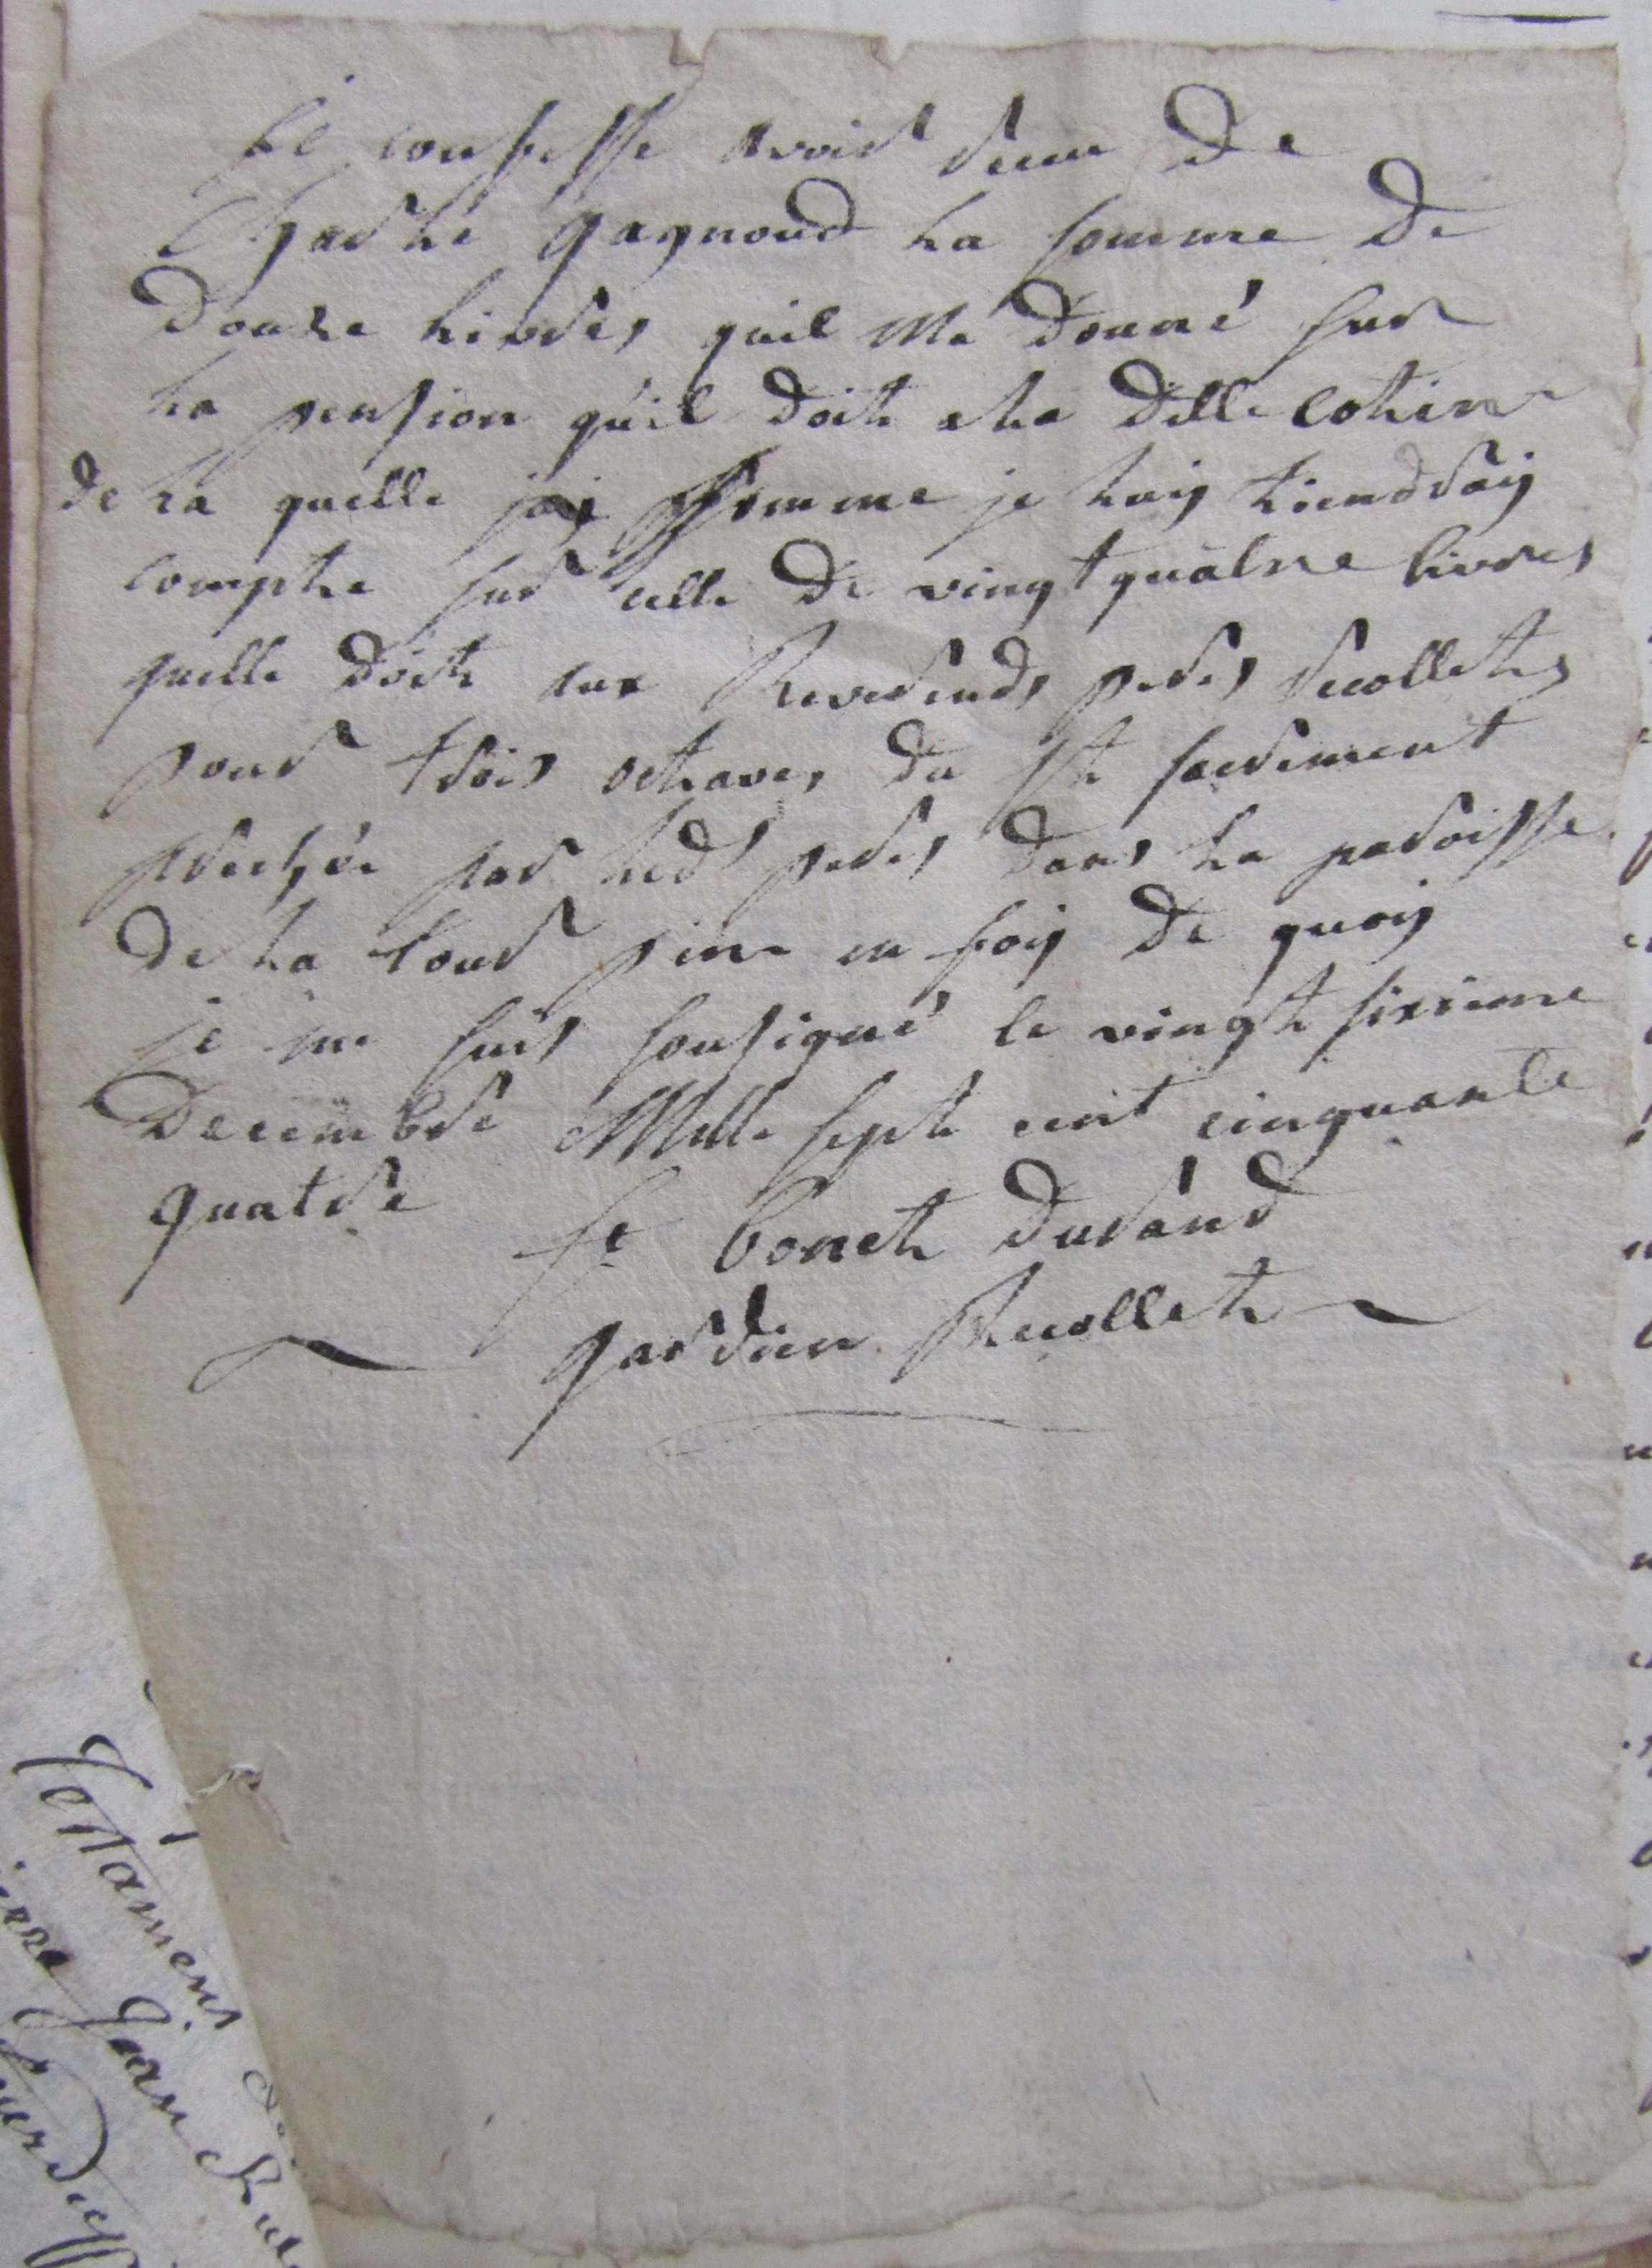 je confesse avoir receu De
Charle gagnoud la somme De
Douze livres quil Ma Donné sur
la pension qu'il doit a la Delle Cotin
De la quelle somme je luy tiendray
compte sur celle De vingt quatre livres
quelle Doit aux Reverends peres recollets
pour trois octaves du st sacrement
prechée par lesd peres Dans la paroisse
De la tour pin en foy De quoy
je me suis sousigné le vingt sixieme
Decembre Mille sept cent cinquante
quatre
fr bonet Durand
gardien Recollet
Testament